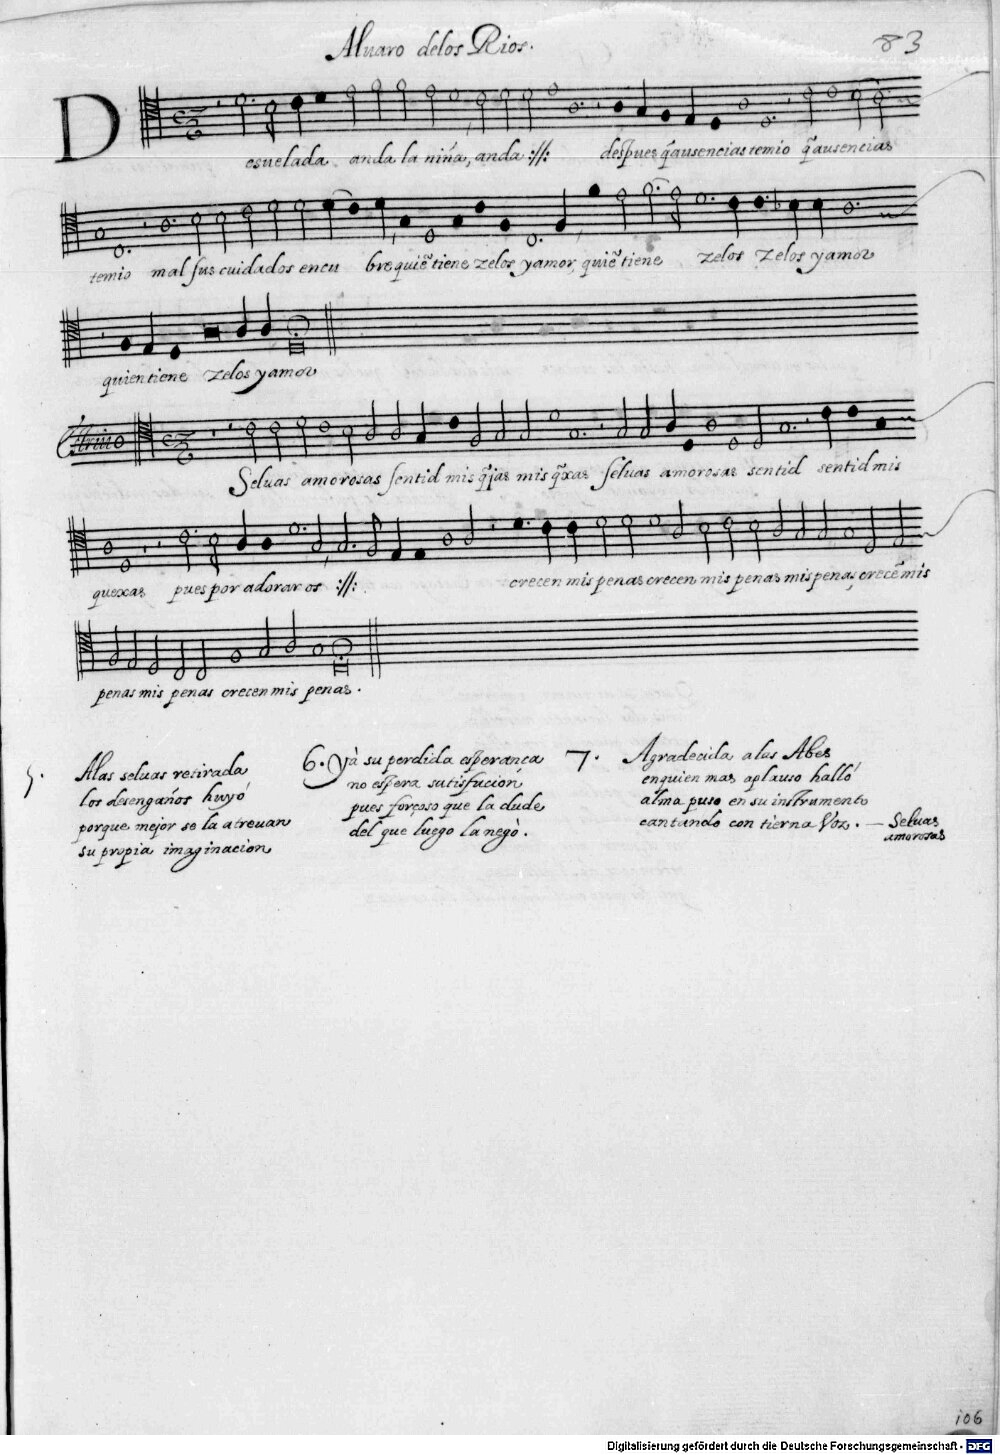 Aluaro delos Rios.
83
D
esuelada anda la niña, anda :||: despues q̃ ausencias temio q̃ ausencias
temio mal sus cuidados encu bre quiẽ tiene zelos y amor, quiẽ tiene zelos zelos y amor
quien tiene zelos y amor
Seluas amorosas sentid mis q̃jas mis q̃xas seluas amorosas sentid sentid mis
quexas pues por adoraros :||: crecen mis penas crecen mis penas mis penas, crecẽ mis
penas mis penas crecen mis penas.
5.
Alas seluas retirada
los desengaños huyó
porque mejor se la atreuan
su propia imaginacion
6. yà su perdida esperança
no espera satisfacion
pues forçoso que la dude
del que luego la negò.
7. Agradecida alas Abes
enquien mas aplauso halló
alma puso en su instrumento
cantando con tierna Voz. — Seluas
amorosas
106
Digitalisierung gefördert durch die Deutsche Forschungsgemeinschaft - DFG